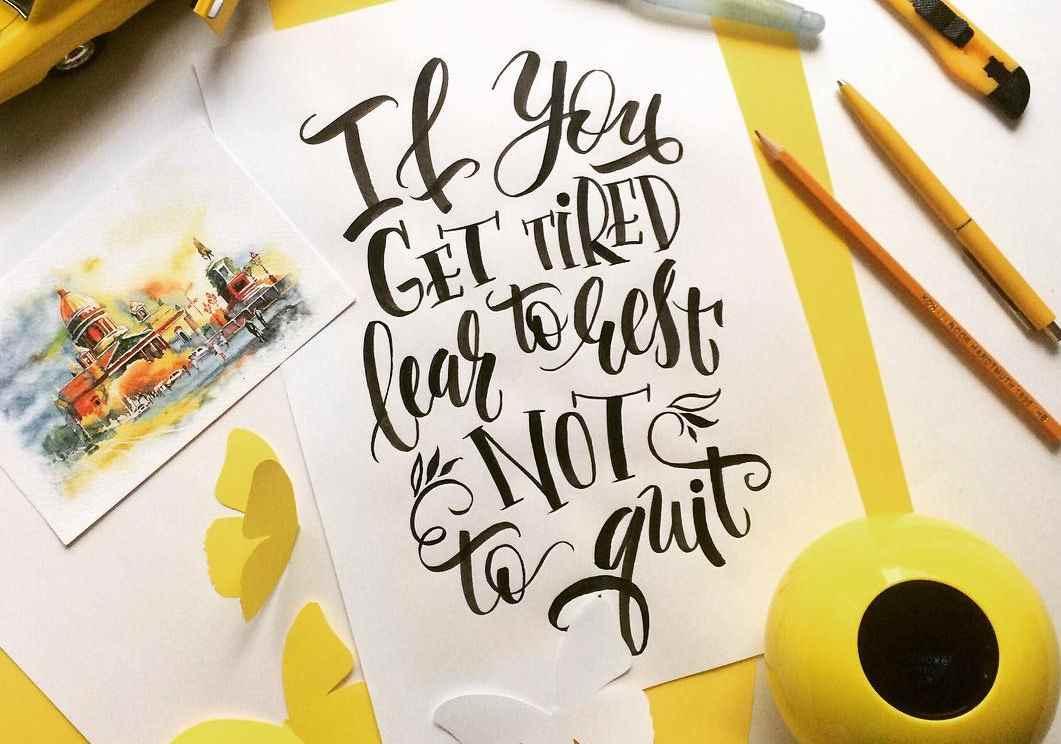 If You
GET TiRED
lear to rest
NOT
to quit